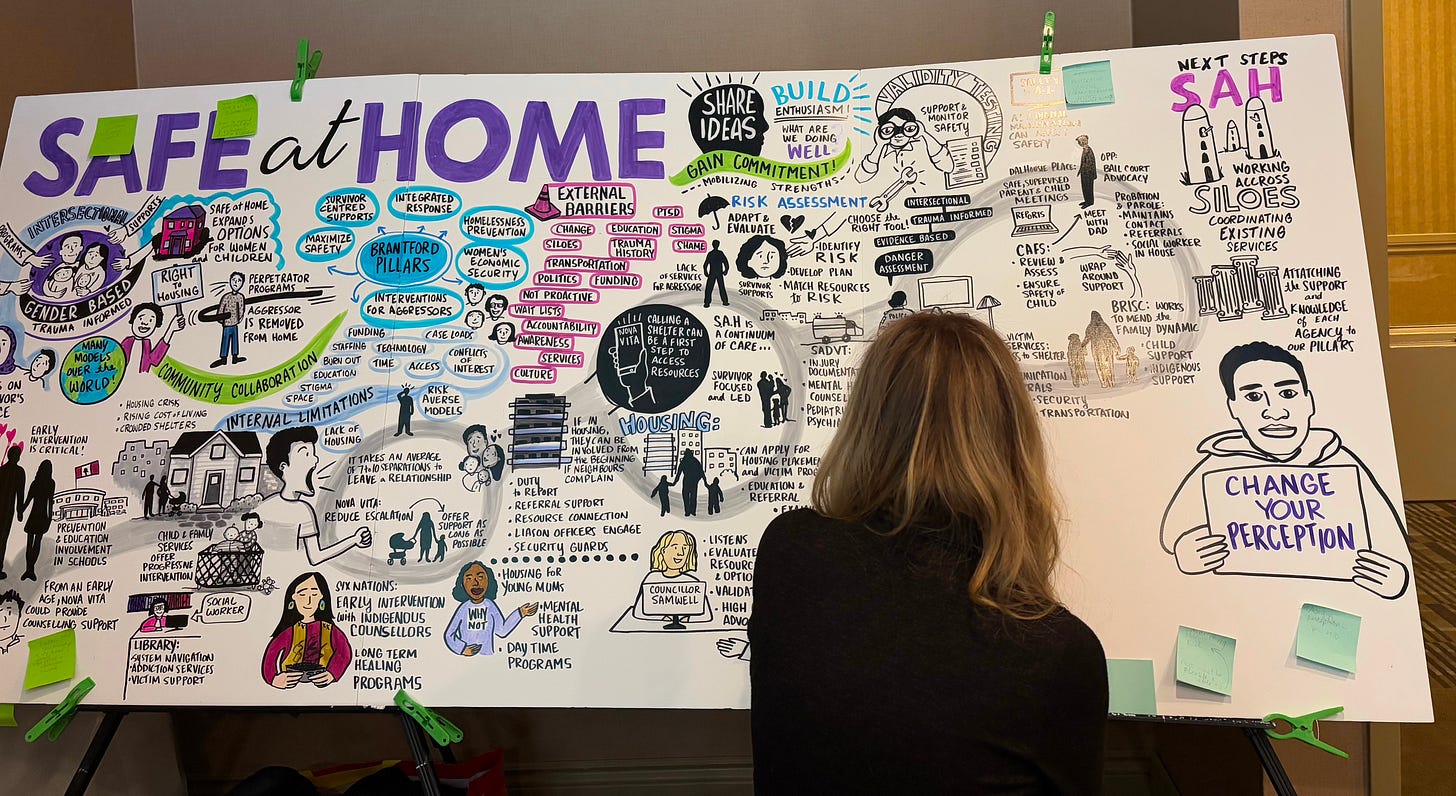 SAFE at HOME
INTERSECTIONAL
PROGRAMS
SUPPORTS
GENDER BASED
TRAUMA INFORMED
SAFE at HOME
EXPANDS
OPTIONS
FOR WOMEN
and CHILDREN
RIGHT
to
HOUSING
PERPETRATOR
PROGRAMS
AGGRESSOR
IS REMOVED
FROM HOME
MANY
MODELS
OVER the
WORLD!
COMMUNITY COLLABORATION
SURVIVOR
CENTRED
SUPPORTS
INTEGRATED
RESPONSE
HOMELESSNESS
PREVENTION
MAXIMIZE
SAFETY
BRANTFORD
PILLARS
WOMEN'S
ECONOMIC
SECURITY
INTERVENTIONS
FOR AGGRESSORS
EXTERNAL
BARRIERS
PTSD
CHANGE
EDUCATION
STIGMA
SILOES
TRAUMA
HISTORY
SHAME
TRANSPORTATION
POLITICS
FUNDING
NOT PROACTIVE
WAIT LISTS
ACCOUNTABILITY
AWARENESS
SERVICES
CULTURE
FUNDING
CASE LOADS
STAFFING
TECHNOLOGY
CONFLICTS
OF
INTEREST
BURN OUT
TIME
ACCESS
EDUCATION
STIGMA
SPACE
INTERNAL LIMITATIONS
RISK
AVERSE
MODELS
• HOUSING CRISIS
• RISING COST OF LIVING
• CROWDED SHELTERS
EARLY
INTERVENTION
IS CRITICAL!
LACK OF
HOUSING
IT TAKES AN AVERAGE
OF 7 to 10 SEPARATIONS to
LEAVE a RELATIONSHIP
NOVA VITA:
REDUCE ESCALATION
OFFER
SUPPORT AS
LONG AS
POSSIBLE
PREVENTION
& EDUCATION
INVOLVEMENT
IN SCHOOLS
CHILD & FAMILY
SERVICES
OFFER
PROGRESSIVE
INTERVENTION
FROM AN EARLY
AGE, NOVA VITA
COULD PROVIDE
COUNSELLING SUPPORT
SOCIAL
WORKER
LIBRARY:
• SYSTEM NAVIGATION
• ADDICTION SERVICES
• VICTIM SUPPORT
SYX NATIONS:
EARLY INTERVENTION
with INDIGENOUS
COUNSELLORS
LONG TERM
HEALING
PROGRAMS
WHY
NOT
• HOUSING FOR
YOUNG MUMS
• MENTAL
HEALTH
SUPPORT
• DAY TIME
PROGRAMS
SHARE
IDEAS
BUILD
ENTHUSIASM!
WHAT ARE
WE DOING
WELL
GAIN COMMITMENT!
MOBILIZING STRENGTHS
VALIDITY TESTING
SUPPORT &
MONITOR
SAFETY
RISK ASSESSMENT
ADAPT &
EVALUATE
CHOOSE the
RIGHT TOOL!
INTERSECTIONAL
TRAUMA INFORMED
EVIDENCE BASED
DANGER
ASSESSMENT
LACK
OF SERVICES
FOR AGRESSOR
SURVIVOR
SUPPORTS
• IDENTIFY
RISK
• DEVELOP PLAN
• MATCH RESOURCES
to RISK
NOVA
VITA
CALLING A
SHELTER CAN
BE A FIRST
STEP TO
ACCESS
RESOURCES
S.A.H IS
A CONTINUUM
OF CARE...
SURVIVOR
FOCUSED
and LED
SADVT:
IF IN
HOUSING,
THEY CAN BE
INVOLVED FROM
the BEGINNING
IF NEIGHBOURS
COMPLAIN
HOUSING:
CAN APPLY FOR
• EDUCATION &
REFERRAL
• DUTY
to REPORT
• REFERRAL SUPPORT
• RESOURSE CONNECTION
• LIASON OFFICERS ENGAGE
• SECURITY GUARDS
COUNCILLOR
SAMWELL
• LISTENS
SAFETY
DALHOUSIE PLACE:
SAFE, SUPERVISED
PARENT & CHILD
MEETINGS
OPP:
BAIL COURT
ADVOCACY
MEET
WITH
DAD
PROBATION
& PAROLE:
• MAINTAINS
CONTACT
• REFERRALS
• SOCIAL WORKER
IN HOUSE
CAFS:
• REVIEW &
ASSESS
• ENSURE
SAFETY OF
CHILD
WRAP
AROUND
SUPPORT
BRISC: WORKS
TO MEND the
FAMILY DYNAMIC
• CHILD
SUPPORT
• INDIGENOUS
SUPPORT
• SECURITY
• TRANSPORTATION
NEXT STEPS
SAH
WORKING
ACCROSS
SILOES
COORDINATING
EXISTING
SERVICES
ATTATCHING
the SUPPORT
and
KNOWLEDGE
OF EACH
AGENCY to
OUR PILLARS
CHANGE
YOUR
PERCEPTION